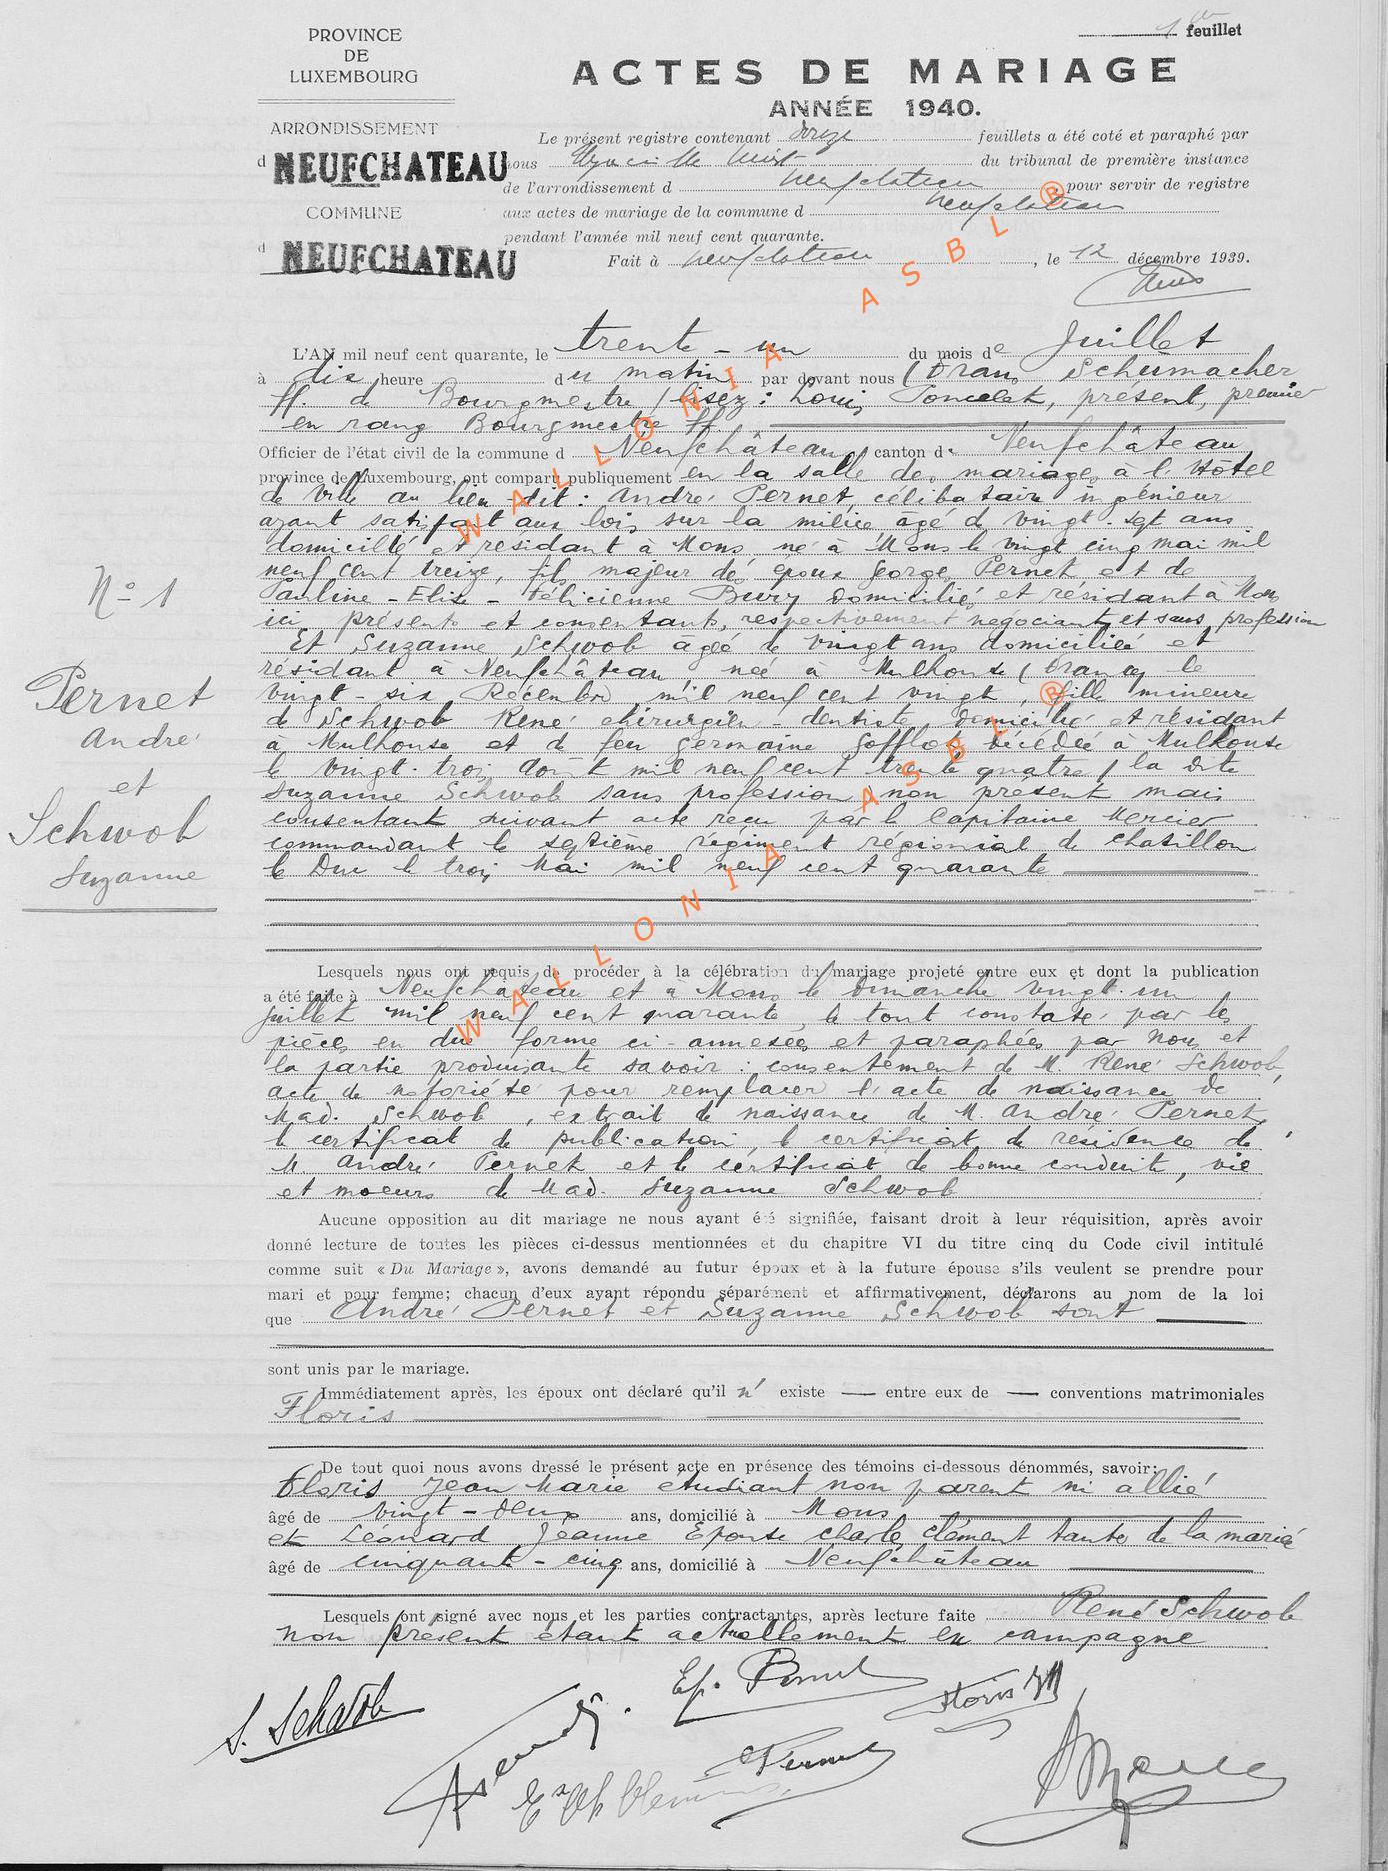 1er feuillet
PROVINCE
DE
LUXEMBOURG
ACTES DE MARIAGE
ANNÉE 1940.
ARRONDISSEMENT
d NEUFCHATEAU
COMMUNE
d NEUFCHATEAU
Le présent registre contenant douze feuillets a été coté et paraphé par
nous du tribunal de première instance
de l'arrondissement d Neufchateau pour servir de registre
aux actes de mariage de la commune d Neufchateau
pendant l'année mil neuf cent quarante.
Fait à Neufchateau, le 12 décembre 1939.
L'AN mil neuf cent quarante, le trente-un du mois de Juillet
à dix heure du matin par devant nous Schumacher
ff. de Bourgmestre (lisez: Louis Poncelet, présent, premier
en rang Bourgmestre ff
Officier de l'état civil de la commune d Neufchâteau, canton de Neufchâteau
province de Luxembourg, ont comparu publiquement en la salle des mariages à l'Hôtel
de Ville au lieu-dit: André Pernet, célibataire ingénieur
ayant satisfait aux lois sur la milice âgé d vingt-sept ans
domicilié et résidant à Mons, né à Mons le vingt cinq mai mil
neuf cent treize, fils majeur des époux George Pernet et de
Pauline-Elise-Félicienne Bury domiciliés et résidant à Mons
ici présents et consentants, respectivement négociant et sans profession
Et Suzanne Schwob âgée de vingt ans domiciliée et
résidant à Neufchâteau, née à Mulhouse (France) le
vingt-six Décembre mil neuf cent vingt, fille mineure
de Schwob René chirurgien-dentiste, domicilié et résidant
à Mulhouse et d feu Germaine décédée à Mulhouse
le vingt-trois Août mil neuf cent trente quatre, la dite
Suzanne Schwob sans profession, non présent mais
consentant suivant acte reçu par le Capitaine Mercier
commandant le septième régiment régional de Chatillon
le Duc le trois Mai mil neuf cent quarante
No 1
Pernet
André
et
Schwob
Suzanne
Lesquels nous ont requis de procéder à la célébration du mariage projeté entre eux et dont la publication
a été faite à Neufchâteau et à Mons le Dimanche vingt-un
juillet mil neuf cent quarante, le tout constaté par les
pièces en due forme ci-annexées et paraphées par Nous et
la partie produisante savoir: consentement de M. René Schwob,
acte de notoriété pour remplacer l'acte de naissance de
Mad. Schwob, extrait de naissance de M. André Pernet,
le certificat de publication le certificat de résidence de
M André Pernet et le certificat de bonne conduite, vie
et moeurs de Mad. Suzanne Schwob
Aucune opposition au dit mariage ne nous ayant été signifiée, faisant droit à leur réquisition, après avoir
donné lecture de toutes les pièces ci-dessus mentionnées et du chapitre VI du titre cinq du Code civil intitulé
comme suit « Du Mariage », avons demandé au futur époux et à la future épouse s'ils veulent se prendre pour
mari et pour femme; chacun d'eux ayant répondu séparément et affirmativement, déclarons au nom de la loi
que André Pernet et Suzanne Schwob sont
sont unis par le mariage.
Immédiatement après, les époux ont déclaré qu'il n' existe — entre eux de — conventions matrimoniales
Floris
De tout quoi nous avons dressé le présent acte en présence des témoins ci-dessous dénommés, savoir:
Floris Jean Marie étudiant non parent ni allié
âgé de vingt-deux ans, domicilié à Mons
et Léonard Jeanne Epouse Charles Clément tante de la mariée
âgé de cinquante-cinq ans, domicilié à Neufchâteau
Lesquels ont signé avec nous et les parties contractantes, après lecture faite René Schwob
non présent étant actuellement en campagne
S. Schwob
Ep. Pernet
Floris JM
Pernet
WALLONIA ASBL ®
WALLONIA ASBL ®